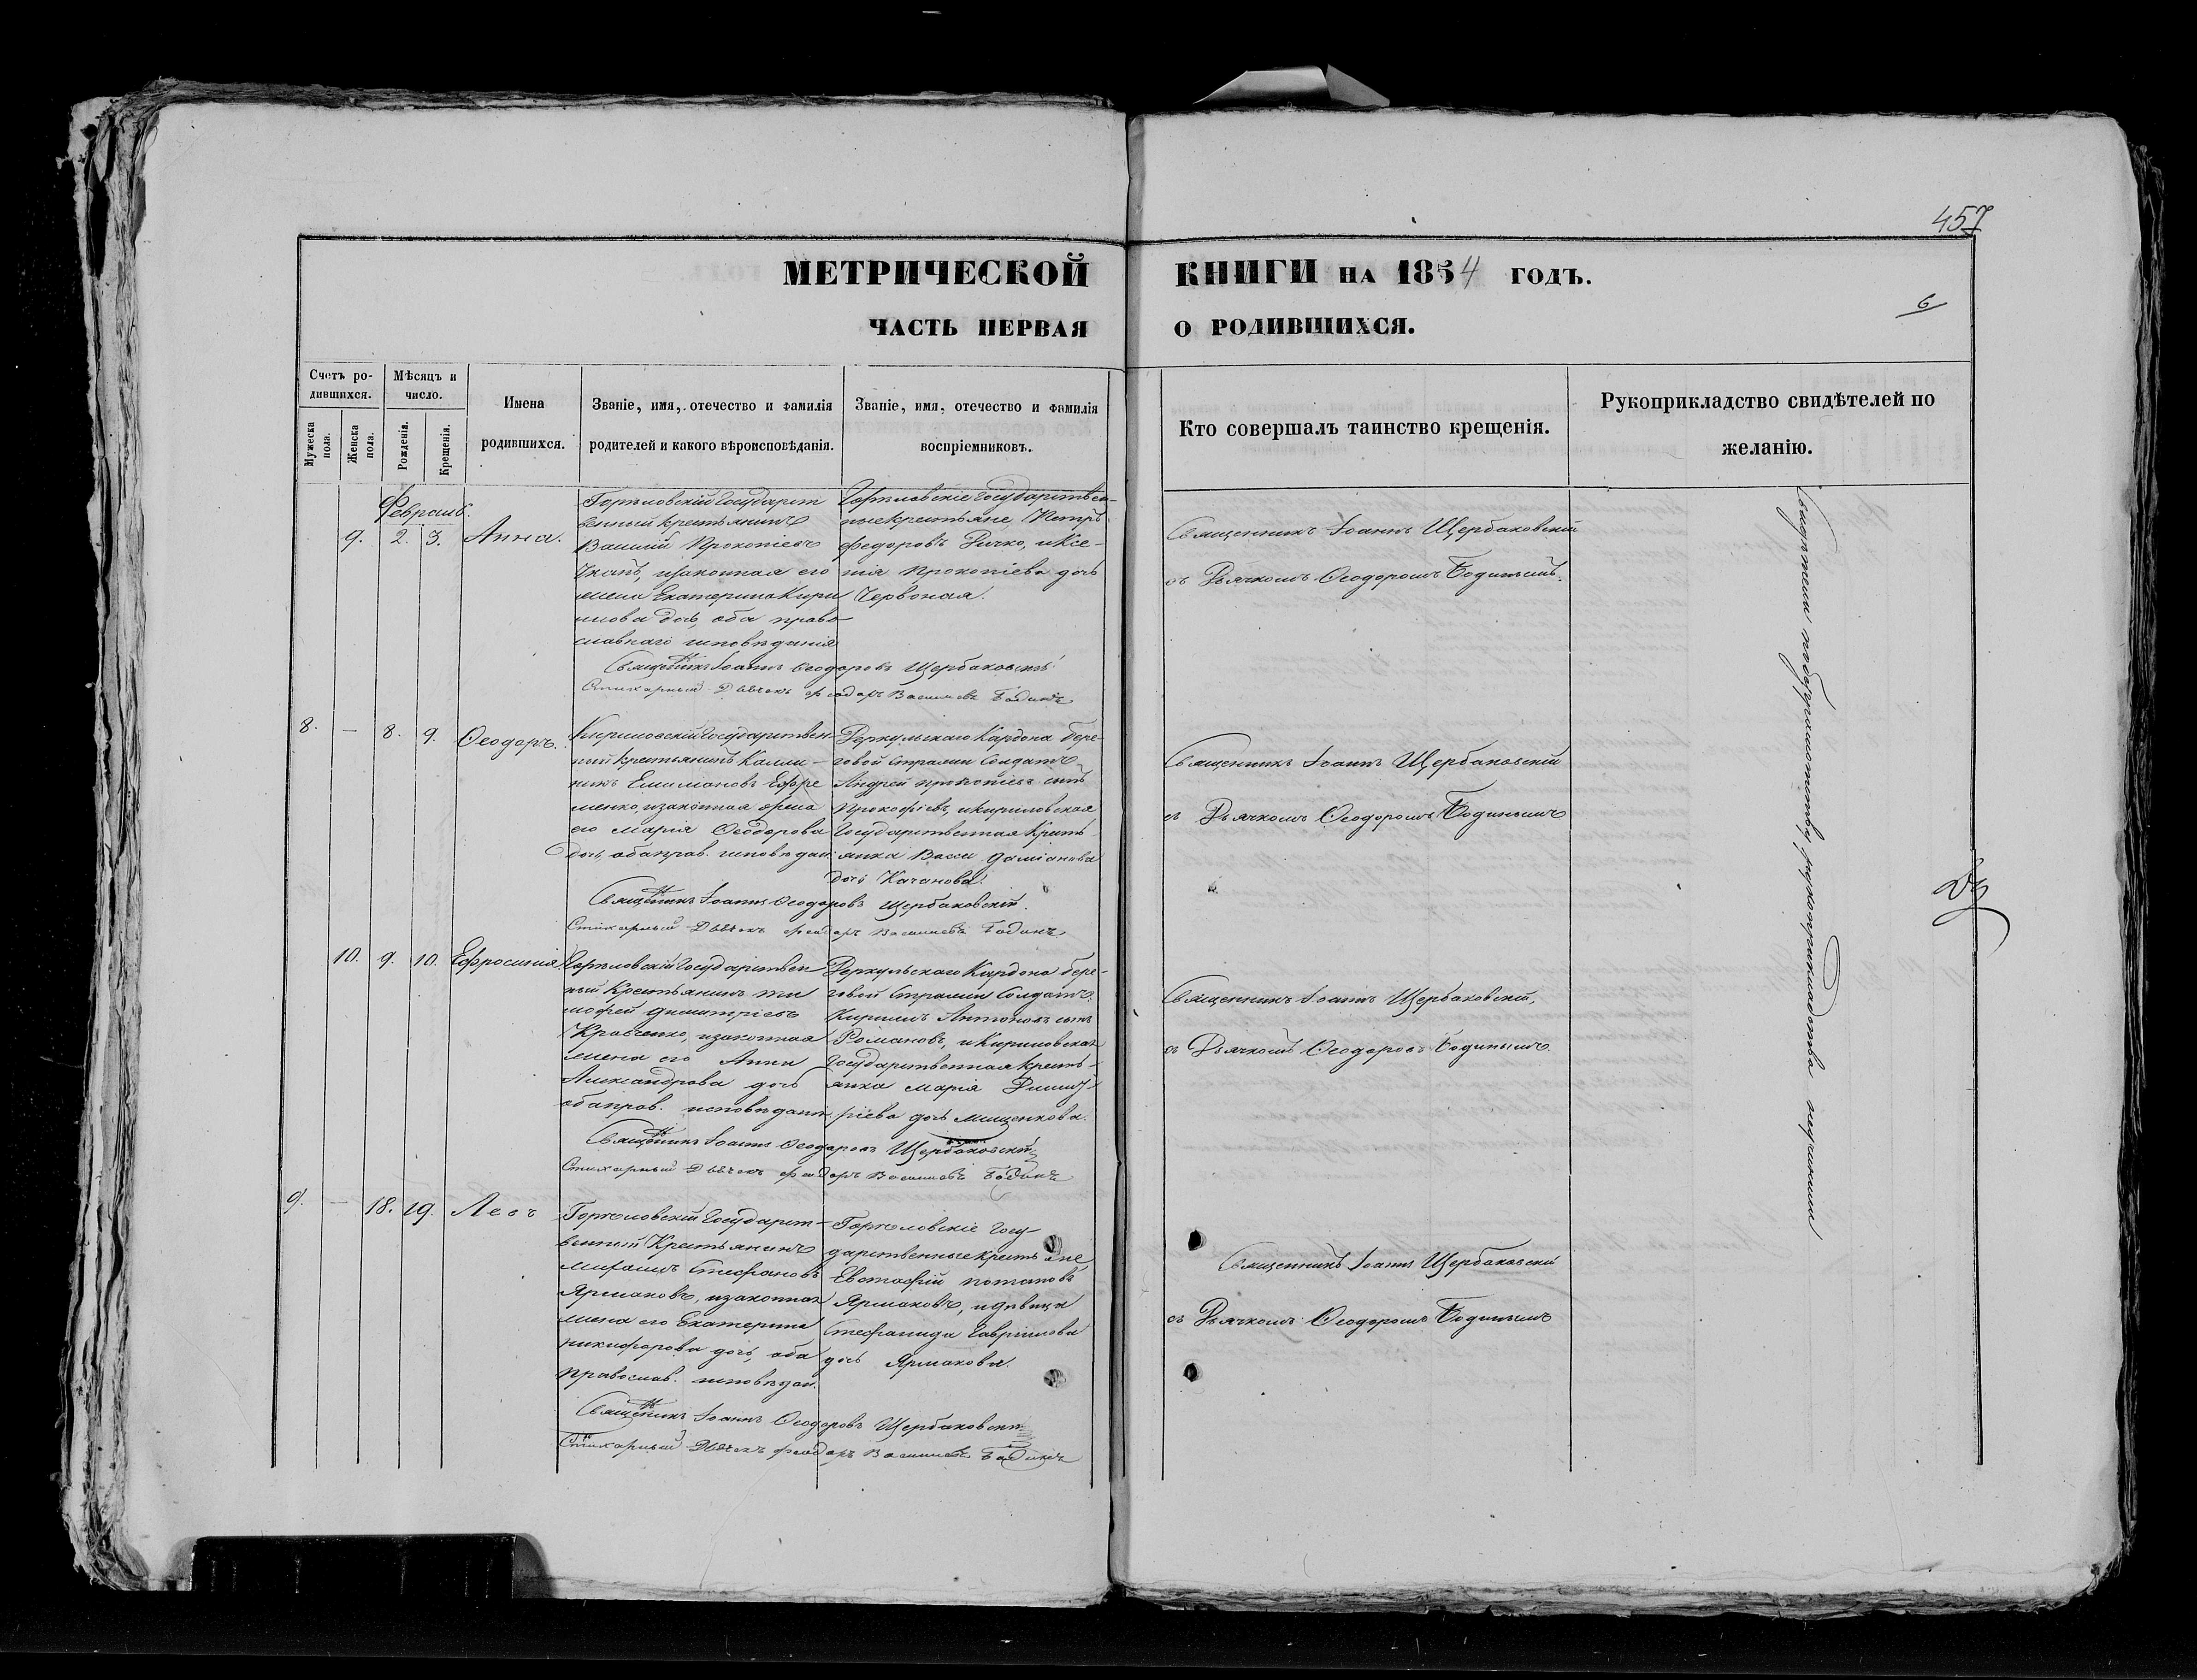 457
МЕТРИЧЕСКОЙ КНИГИ НА 1854 ГОДЪ.
6
ЧАСТЬ ПЕРВАЯ О РОДИВШИХСЯ.
Счетъ родившихся.
Мужеска пола.
Женска пола.
Мѣсяцъ и число.
Рожденія.
Крещенія.
Имена родившихся.
Званіе, имя, отечество и фамилія родителей и какого вѣроисповѣданія.
Званіе, имя, отечество и фамилія воспріемниковъ.
Кто совершалъ таинство крещенія.
Рукоприкладство свидѣтелей по желанію.
Февраль.
9. 2. 3. Анна.
Государст
венный крестьянинъ
Василій Прокопіевъ
законная его
жена Екатерина Кири
лова дочь, оба право
славнаго исповѣданія
Государствен-
ные крестьяне, Петръ
Федоровъ Ричко, и Ксе-
нія Прокопіева дочь
Червоная.
Священникъ Іоаннъ Щербаковскій
съ Дьячкомъ Ѳеодоромъ Бодинымъ.
Священникъ Іоаннъ Ѳеодоровъ Щербаковскій
Стихарный Дьячекъ Феодоръ Васильевъ Бодинъ
8. — 8. 9. Ѳеодоръ.
Кириловскій Государствен-
ный крестьянинъ Калли-
никъ Ефре
менко, и законная жена
его Марія Ѳеодорова
дочь, оба прав. исповѣдан.
Деркульскаго Кардона бере-
говой Стражи Солдатъ
Андрей Прокопіевъ сынъ
Прокофіевъ, и Кириловская
Государственная Кресть-
янка Васса Даміанова
дочь Качанова.
Священникъ Іоаннъ Щербаковскій
съ Дьячкомъ Ѳеодоромъ Бодинымъ
Священникъ Іоаннъ Ѳеодоровъ Щербаковскій.
Стихарный Дьячекъ Феодоръ Васильевъ Бодинъ
10. 9. 10. Ефросинія
Государствен
ный Крестьянинъ Ти
мофей Димитріевъ
Кравченко, и законная
жена его Анна
Александрова дочь
оба прав. исповѣдан.
Деркульскаго Кардона бере-
говой Стражи Солдатъ
Кирилъ Антоновъ сынъ
Романовъ, и Кириловская
Государственная кресть-
янка Марія Димит-
ріева дочь Мищенкова.
Священникъ Іоаннъ Щербаковскій,
съ Дьячкомъ Ѳеодоромъ Бодинымъ.
Священникъ Іоаннъ Ѳеодоровъ Щербаковскій
Стихарный Дьячекъ Феодоръ Васильевъ Бодинъ
9. — 18. 19. Левъ
Государст-
венный Крестьянинъ
Михаилъ Стефановъ
Ярмаковъ, и законная
жена его Екатерина
Никифорова дочь, оба
православ. исповѣдан.
Госу-
дарственные крестьяне
Евстафій Потаповъ
Ярмаковъ, и дѣвица
Стефанида Гавріилова
дочь Ярмакова.
Священникъ Іоаннъ Щербаковскій
съ Дьячкомъ Ѳеодоромъ Бодинымъ
Священникъ Іоаннъ Ѳеодоровъ Щербаковскій
Стихарный Дьячекъ Феодоръ Васильевъ Бодинъ
по безграмотству рукоприкладства не учинили